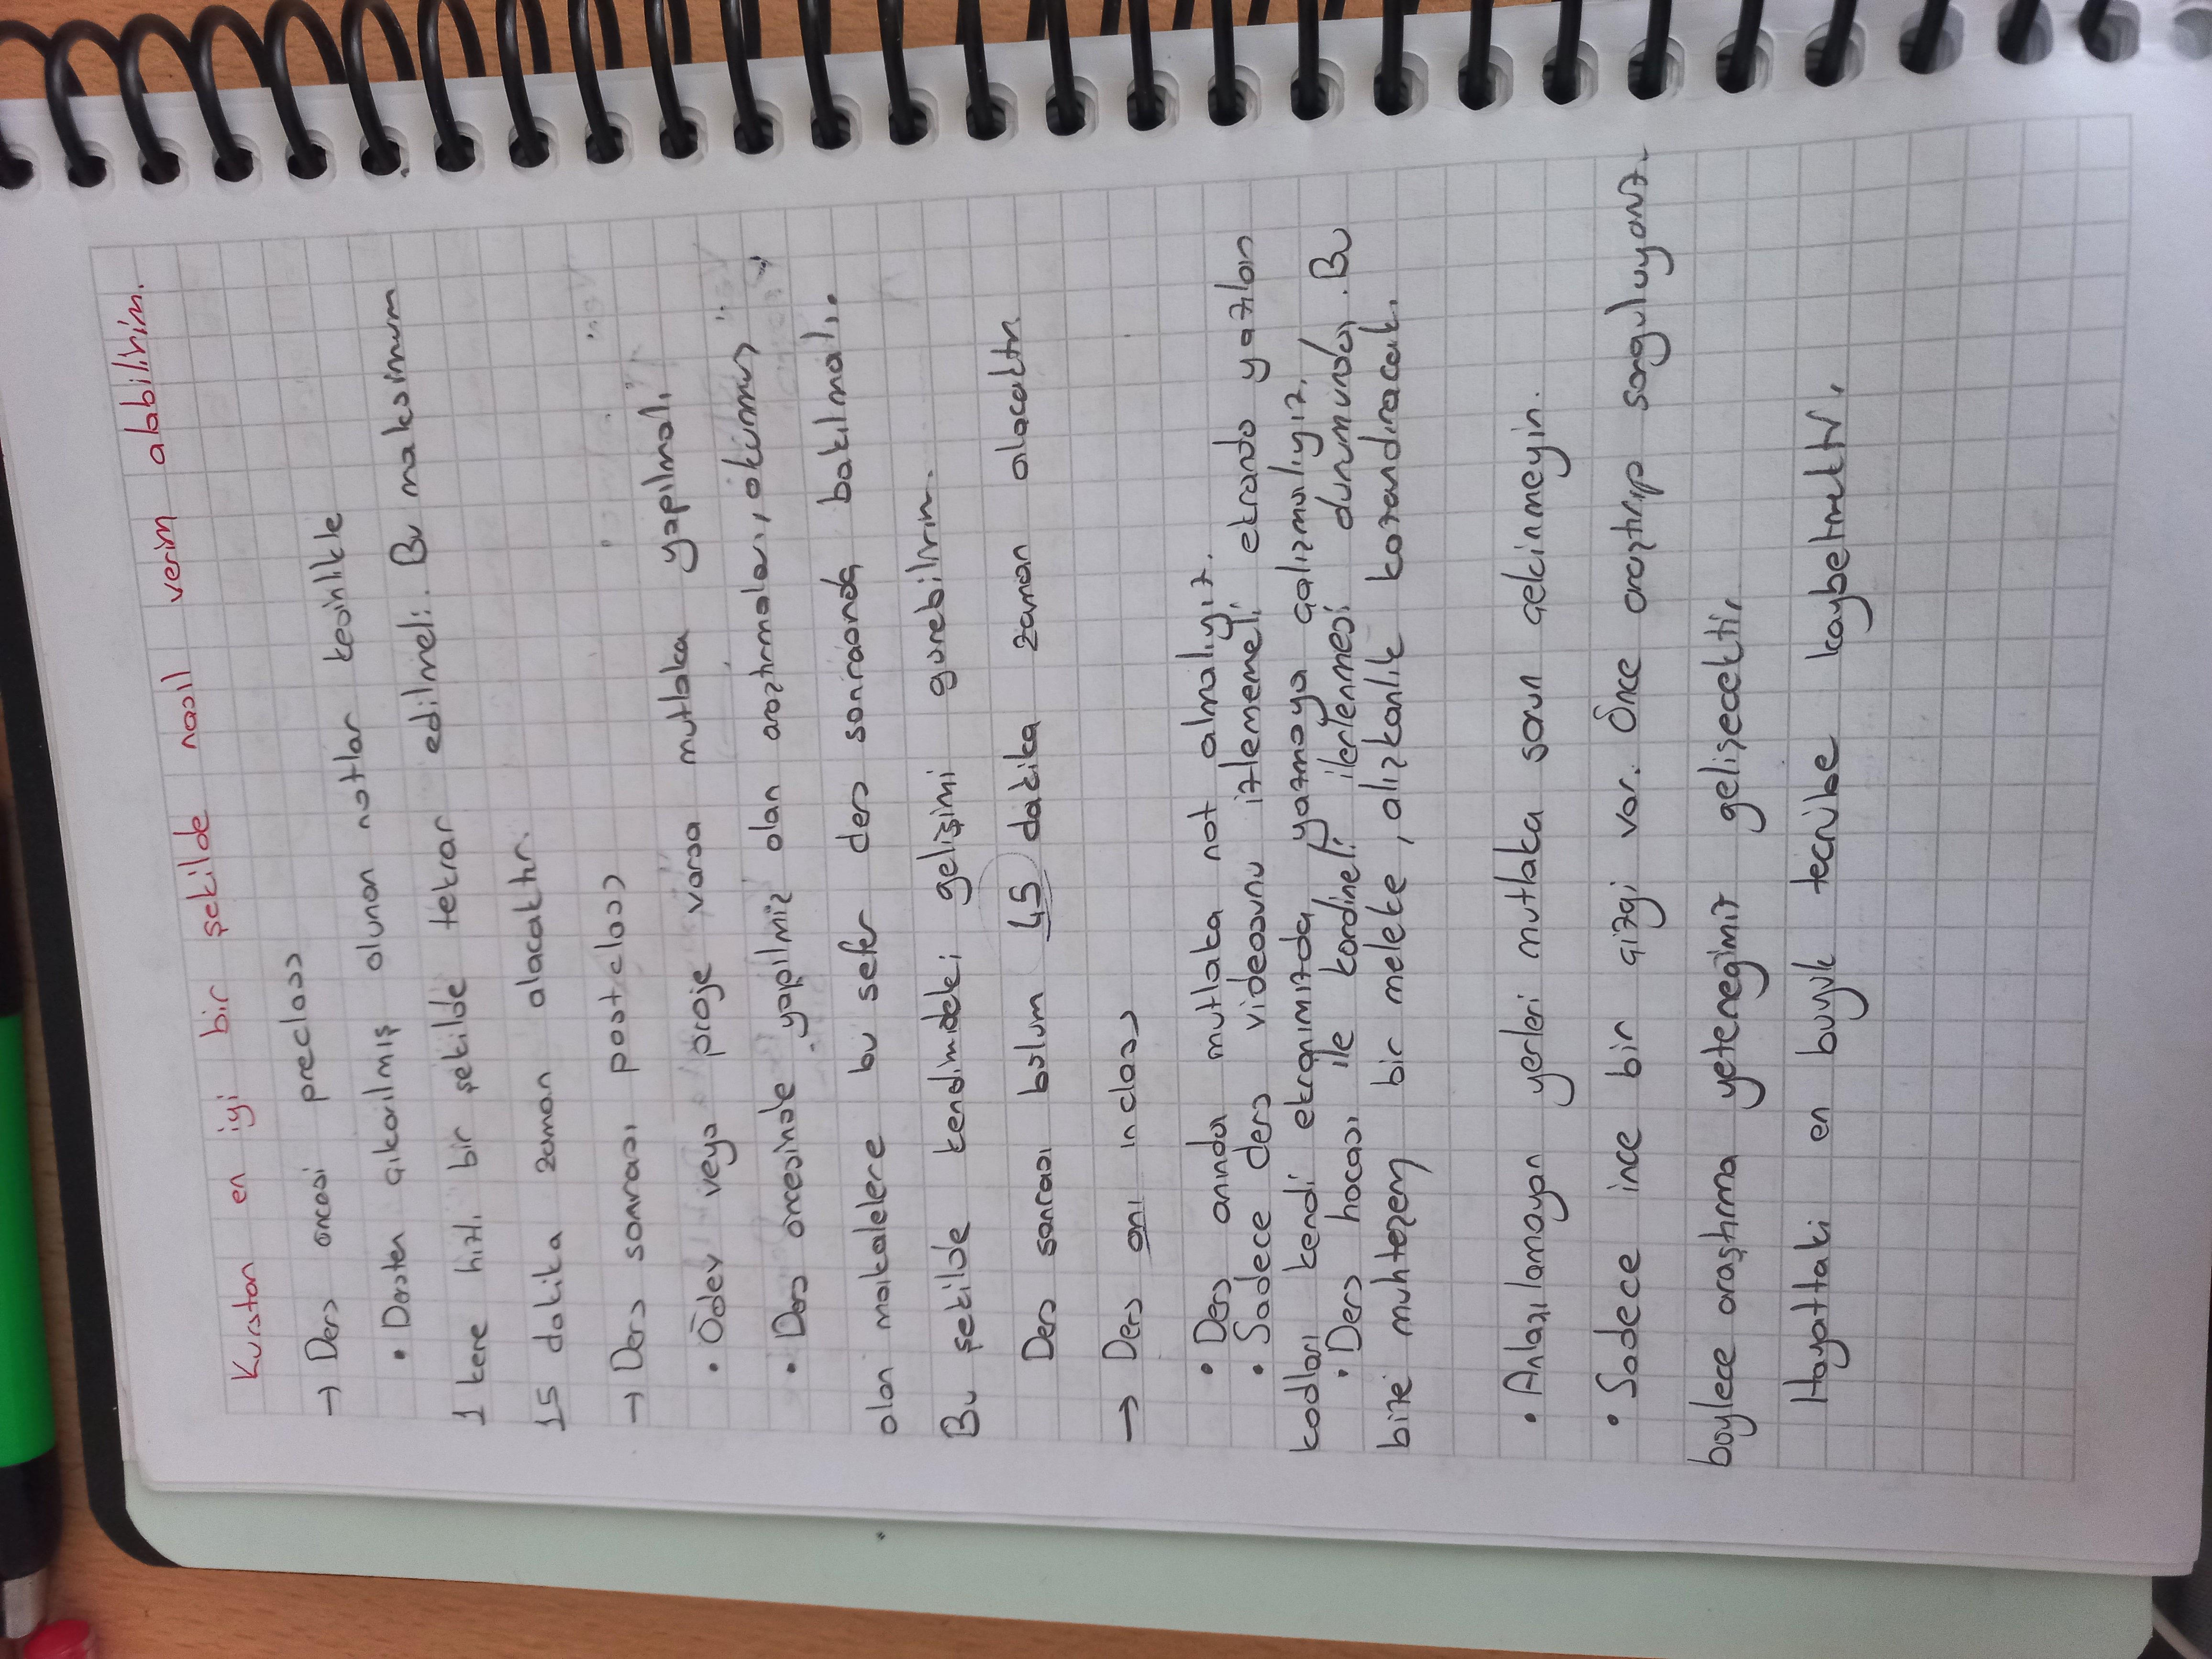 Kurstan en iyi bir şekilde nasıl verim alabilirim.
→ Ders öncesi preclass
• Dersten çıkarılmış olunan notlar kesinlikle
1 kere hızlı bir şekilde tekrar edilmeli. Bu maksimum
15 dakika zaman alacaktır.
→ Ders sonrası postclass
• Ödev veya proje varsa mutlaka yapılmalı
• Ders öncesinde yapılmiz olan araztırmaları, okunmuş
olan makalelere bu sefer ders sonrasında bakılmalı.
Bu şekilde kendimideki gelişimi gorebilirim.
Ders sonrası bolum 45 dakika zaman alacaktır.
→ Ders anı inclass
• Ders anında mutlaka not almalıyız.
• Sadece ders videosunu izlememeli ekranda yazılan
kodları kendi ekranımızda yazmaya çalızmalıyız.
• Ders hocası ile kordineli ilerlenmesi durumunda. Bu
bize muhtezem bir meleke, alızkanlık kazandıracak.
• Anlazılamayan yerleri mutlaka sorun çekinmeyin.
• Sadece ince bir çizgi var. Önce araztırıp sorguluyoruz.
boylece araştırma yetenegimiz gelizecektir
Hayattaki en buyuk tecrübe kaybetmektir.